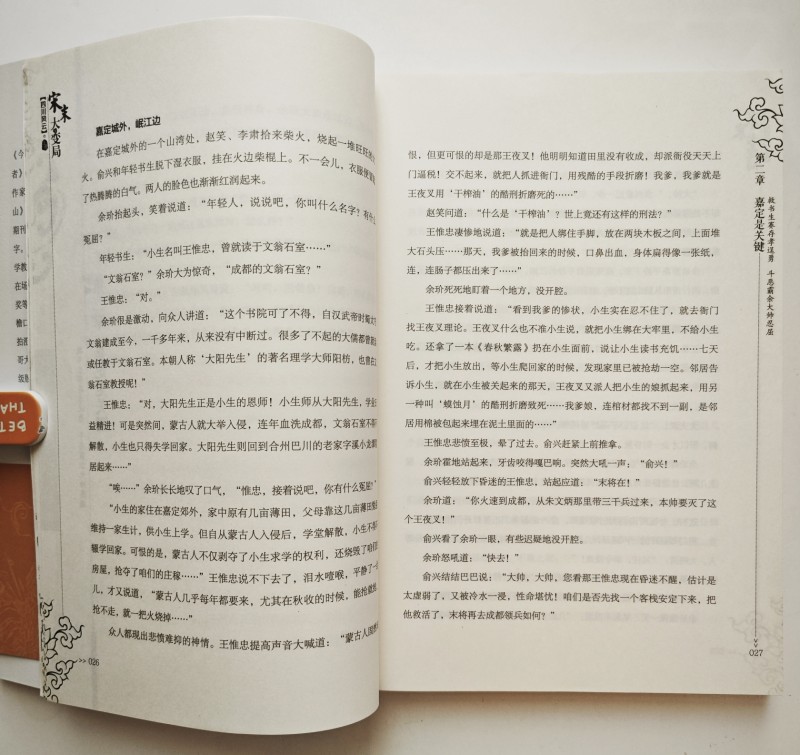 《今
者》
作家
山》
期刊
字。
学教
在场
奖等
檐口
拍摄
哥大
BET
THA
宋末大变局
【四川舆云】
嘉定城外，岷江边
在嘉定城外的一个山湾处，赵笑、李肃拾来柴火，烧起一堆旺旺的
火。俞兴和年轻书生脱下湿衣服，挂在火边柴棍上。不一会儿，衣服便冒
了热腾腾的白气。两人的脸色也渐渐红润起来。
余玠抬起头，笑着说道：“年轻人，说说吧，你叫什么名字？有什么
冤屈？”
年轻书生：“小生名叫王惟忠，曾就读于文翁石室……”
“文翁石室？”余玠大为惊奇，“成都的文翁石室？”
王惟忠：“对。”
余玠很是激动，向众人讲道：“这个书院可了不得，自汉武帝时蜀
文翁建成至今，一千多年来，从来没有中断过。很多了不起的大儒都曾
或任教于文翁石室。本朝人称‘大阳先生’的著名理学大师阳枋，也曾在
翁石室教授呢！”
王惟忠：“对，大阳先生正是小生的恩师！小生师从大阳先生，学业
益精进！可是突然间，蒙古人就大举入侵，连年血洗成都，文翁石室不
解散，小生也只得失学回家。大阳先生则回到合州巴川的老家字溪小龙
居起来……”
“唉……”余玠长长地叹了口气，“惟忠，接着说吧，你有什么冤屈？”
“小生的家住在嘉定郊外，家中原有几亩薄田，父母靠这几亩薄田
维持一家生计，供小生上学。但自从蒙古人入侵后，学堂解散，小生不得
辍学回家。可恨的是，蒙古人不仅剥夺了小生求学的权利，还烧毁了咱们
房屋，抢夺了咱们的庄稼……”王惟忠说不下去了，泪水噎喉，平静了一
儿，才又说道，“蒙古人几乎每年都要来，尤其在秋收的时候，能抢就抢，
抢不走，就一把火烧掉……”
众人都现出悲愤难抑的神情。王惟忠提高声音大喊道：“蒙古人固然
>> 026
恨，但更可恨的却是那王夜叉！他明明知道田里没有收成，却派衙役天天上
门逼税！交不起来，就把人抓进衙门，用残酷的手段折磨！我爹，我爹就是
王夜叉用‘干榨油’的酷刑折磨死的……”
赵笑问道：“什么是‘干榨油’？世上竟还有这样的刑法？”
王惟忠凄惨地说道：“就是把人绑住手脚，放在两块木板之间，上面堆
大石头压……那天，我爹被抬回来的时候，口鼻出血，身体扁得像一张纸，
连，连肠子都压出来了……”
余玠死死地盯着一个地方，没开腔。
王惟忠接着说道：“看到我爹的惨状，小生实在忍不住了，就去衙门
找王夜叉理论。王夜叉什么也不准小生说，就把小生绑在大牢里，不给小生
吃。还拿了一本《春秋繁露》扔在小生面前，说让小生读书充饥……七天
后，才把小生放出，等小生爬回家的时候，发现家里已被抢劫一空。邻居告
诉小生，就在小生被关起来的那天，王夜叉又派人把小生的娘抓起来，用另
一种叫‘蟆蚀月’的酷刑折磨致死……我爹娘，连棺材都找不到一副，是邻
居用棉被包起来埋在泥土里面的……”
王惟忠悲愤至极，晕了过去。俞兴赶紧上前推拿。
余玠霍地站起来，牙齿咬得嘎巴响。突然大吼一声：“俞兴！”
俞兴轻轻放下昏迷的王惟忠，站起应道：“末将在！”
余玠道：“你火速到成都，从朱文炳那里带三千兵过来，本帅要灭了这
个王夜叉！”
俞兴看了余玠一眼，有些迟疑地没开腔。
余玠怒吼道：“快去！”
俞兴结结巴巴说：“大帅，大帅，您看那王惟忠现在昏迷不醒，估计是
太虚弱了，又被冷水一浸，性命堪忧！咱们是否先找一个客栈安定下来，把
他救活了，末将再去成都领兵如何？”
第二章 嘉定是关键
救书生赛存孝逞勇 斗恶霸余大帅忍屈
>> 027